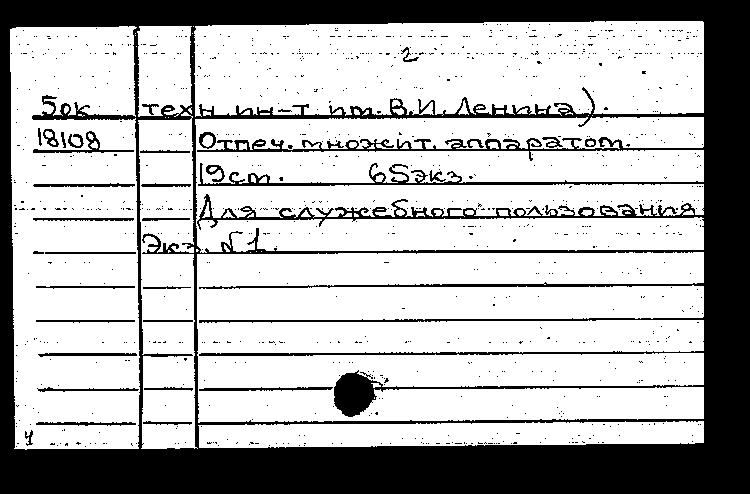 2
5ок техн. ин-т им. В.И. Ленина).
18108 Отпеч. множит. аппаратом.
19 ст. 65 экз.
Для служебного пользования
Экз. №1.
4